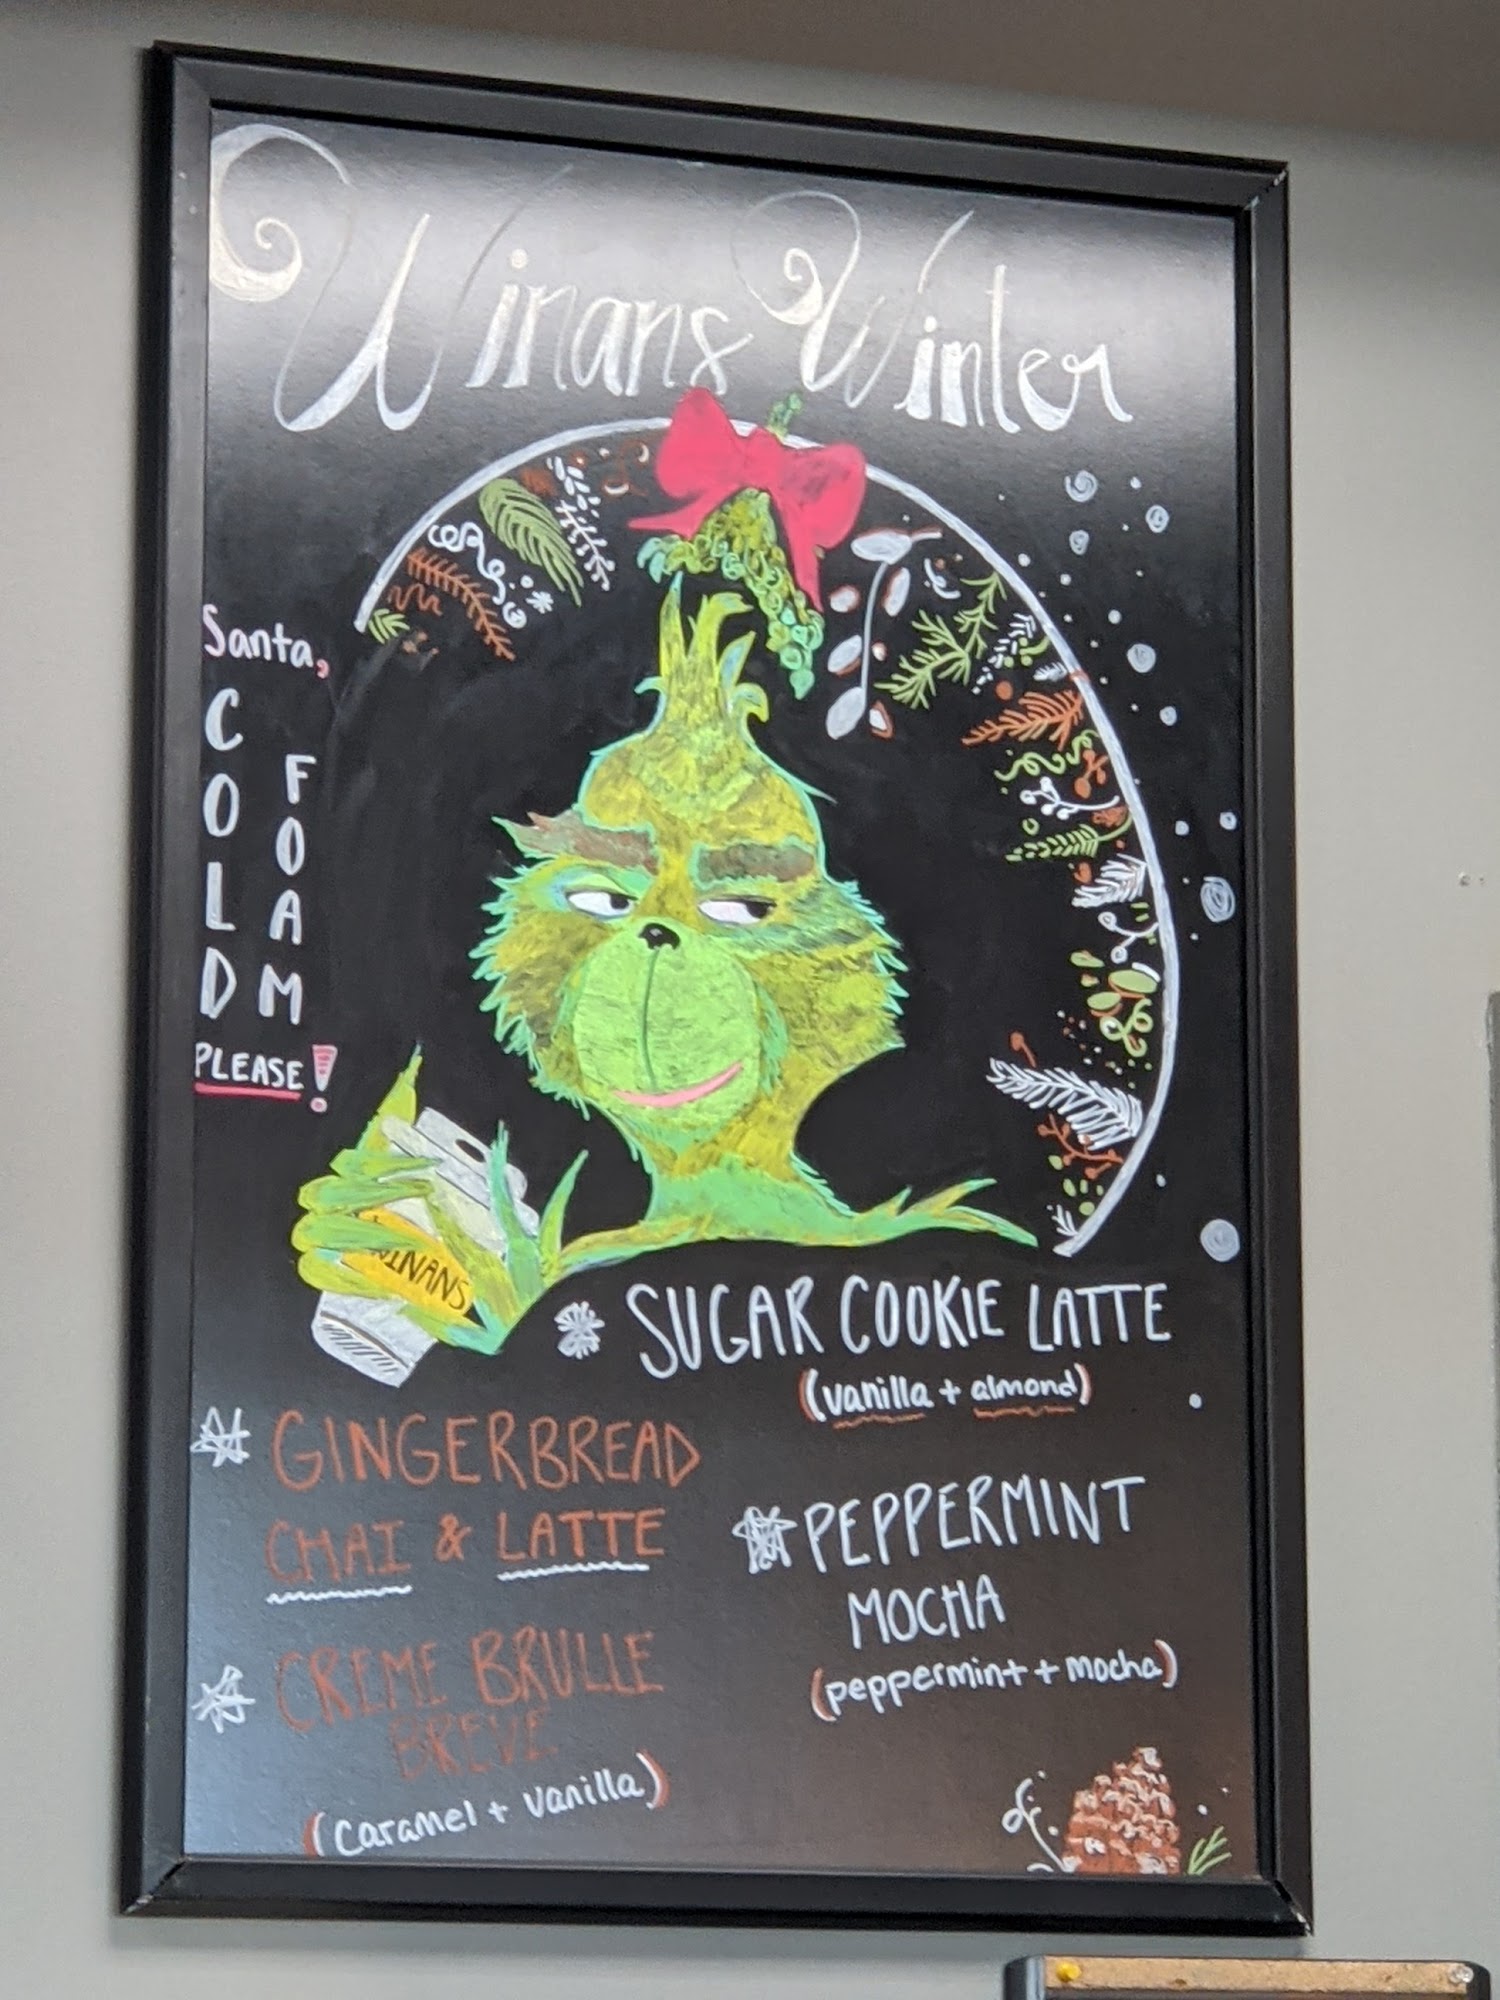 Winans Winter
Santa,
COLD
FOAM
PLEASE!
WINANS
SUGAR COOKIE LATTE
(vanilla + almond)
GINGERBREAD
CHAI & LATTE
PEPPERMINT
MOCHA
(peppermint + mocha)
CREME BRULLE
BREVE
(caramel + vanilla)